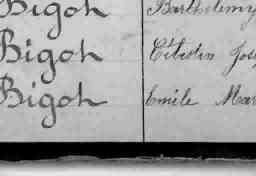 Bigot Barthelemy
Bigot Célestin Jose
Bigot Emile Mar